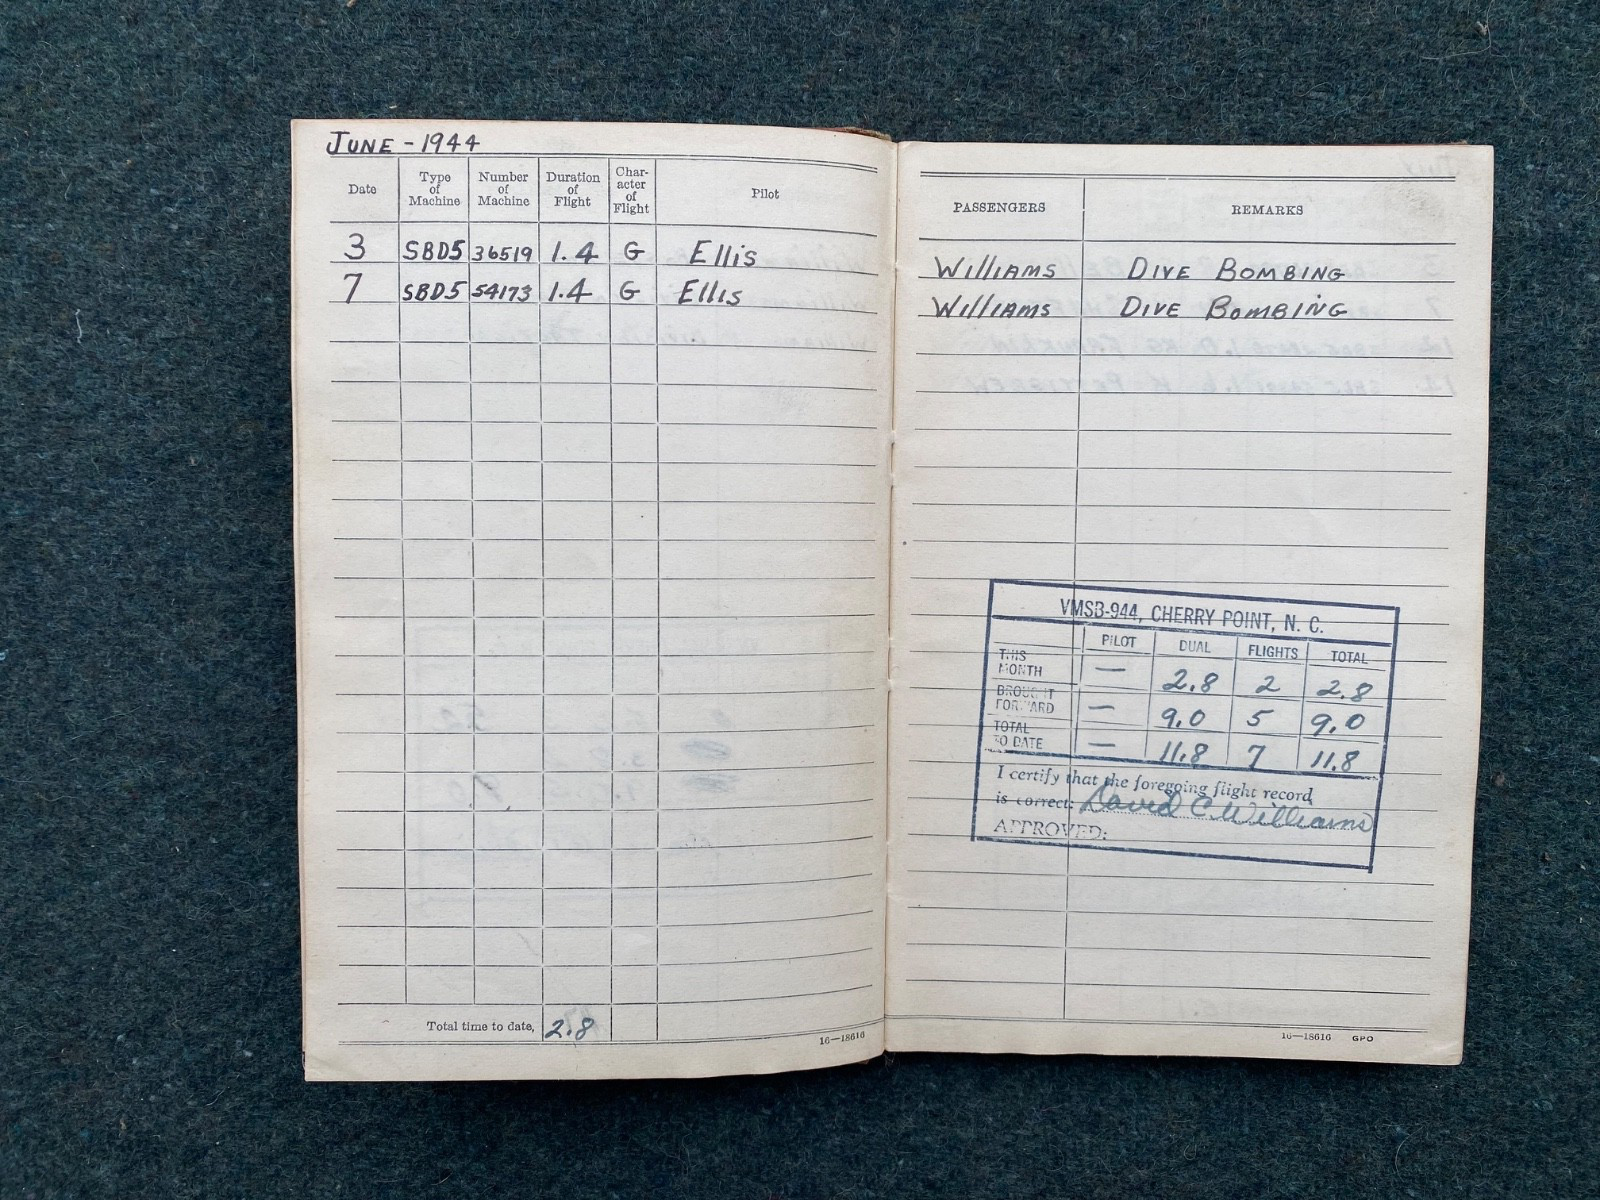 JUNE - 1944
Date Type of Machine Number of Machine Duration of Flight Char-acter of Flight Pilot
3 SBD5 36519 1.4 G Ellis
7 SBD5 54173 1.4 G Ellis
Total time to date, 2.8
16—18616
PASSENGERS REMARKS
Williams DIVE BOMBING
Williams DIVE BOMBING
VMSB-944, CHERRY POINT, N. C.
PILOT DUAL FLIGHTS TOTAL
THIS MONTH — 2.8 2 2.8
BROUGHT FORWARD — 9.0 5 9.0
TOTAL TO DATE — 11.8 7 11.8
I certify that the foregoing flight record
is correct: David C. Williams
APPROVED:
16—18616 GPO